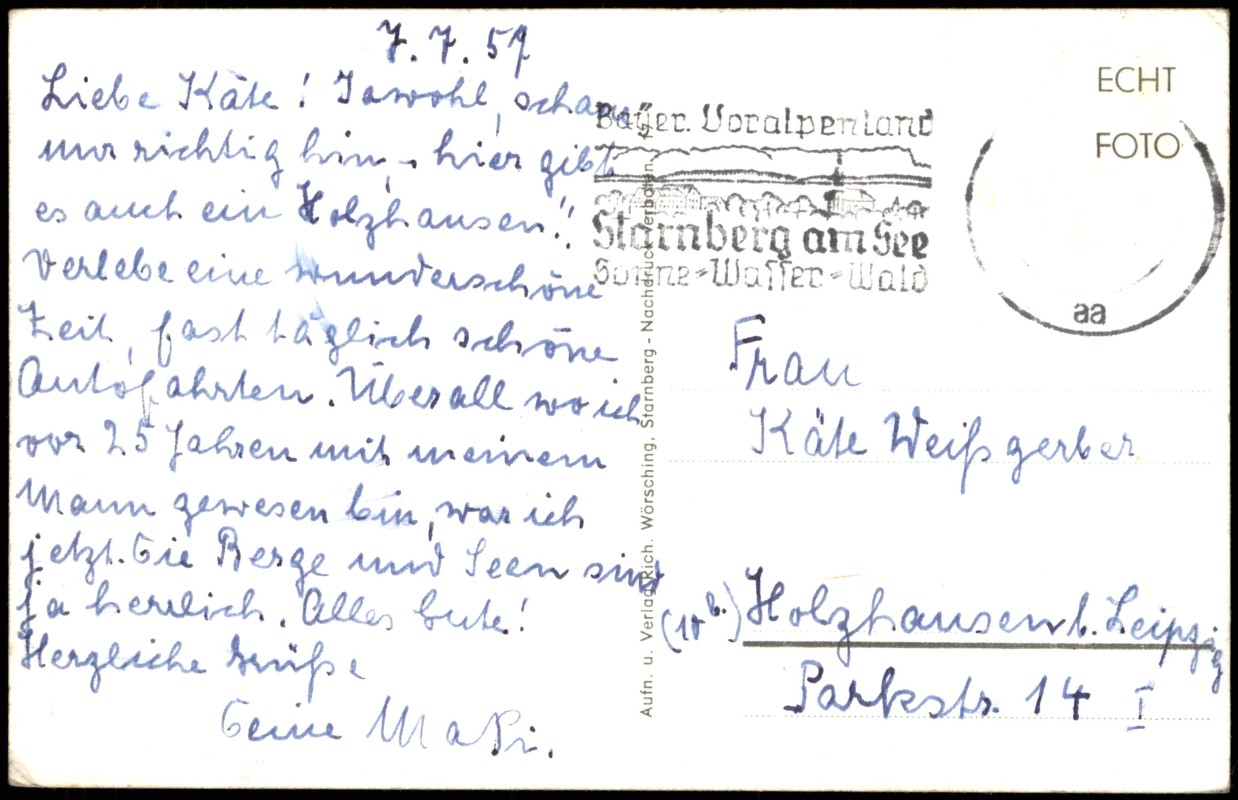 7.7.59
Liebe Käte! Jawohl, schau
nur richtig hin, - hier gibt
es auch ein Holzhausen!!
Verlebe eine wunderschöne
Zeit, fast täglich schöne
Autofahrten. Überall wo ich
vor 25 Jahren mit meinem
Mann gewesen bin, war ich
jetzt. Die Berge und Seen sind
ja herrlich. Alles Gute!
Herzliche Grüße
Deine
Bayer. Voralpenland
Starnberg am See
Sonne-Wasser-Wald
aa
ECHT
FOTO
Aufn. u. Verlag Rich. Wörsching, Starnberg - Nachdruck verboten
Frau
Käte Weißgerber
(10b.) Holzhausen b. Leipzig
Parkstr. 14 I